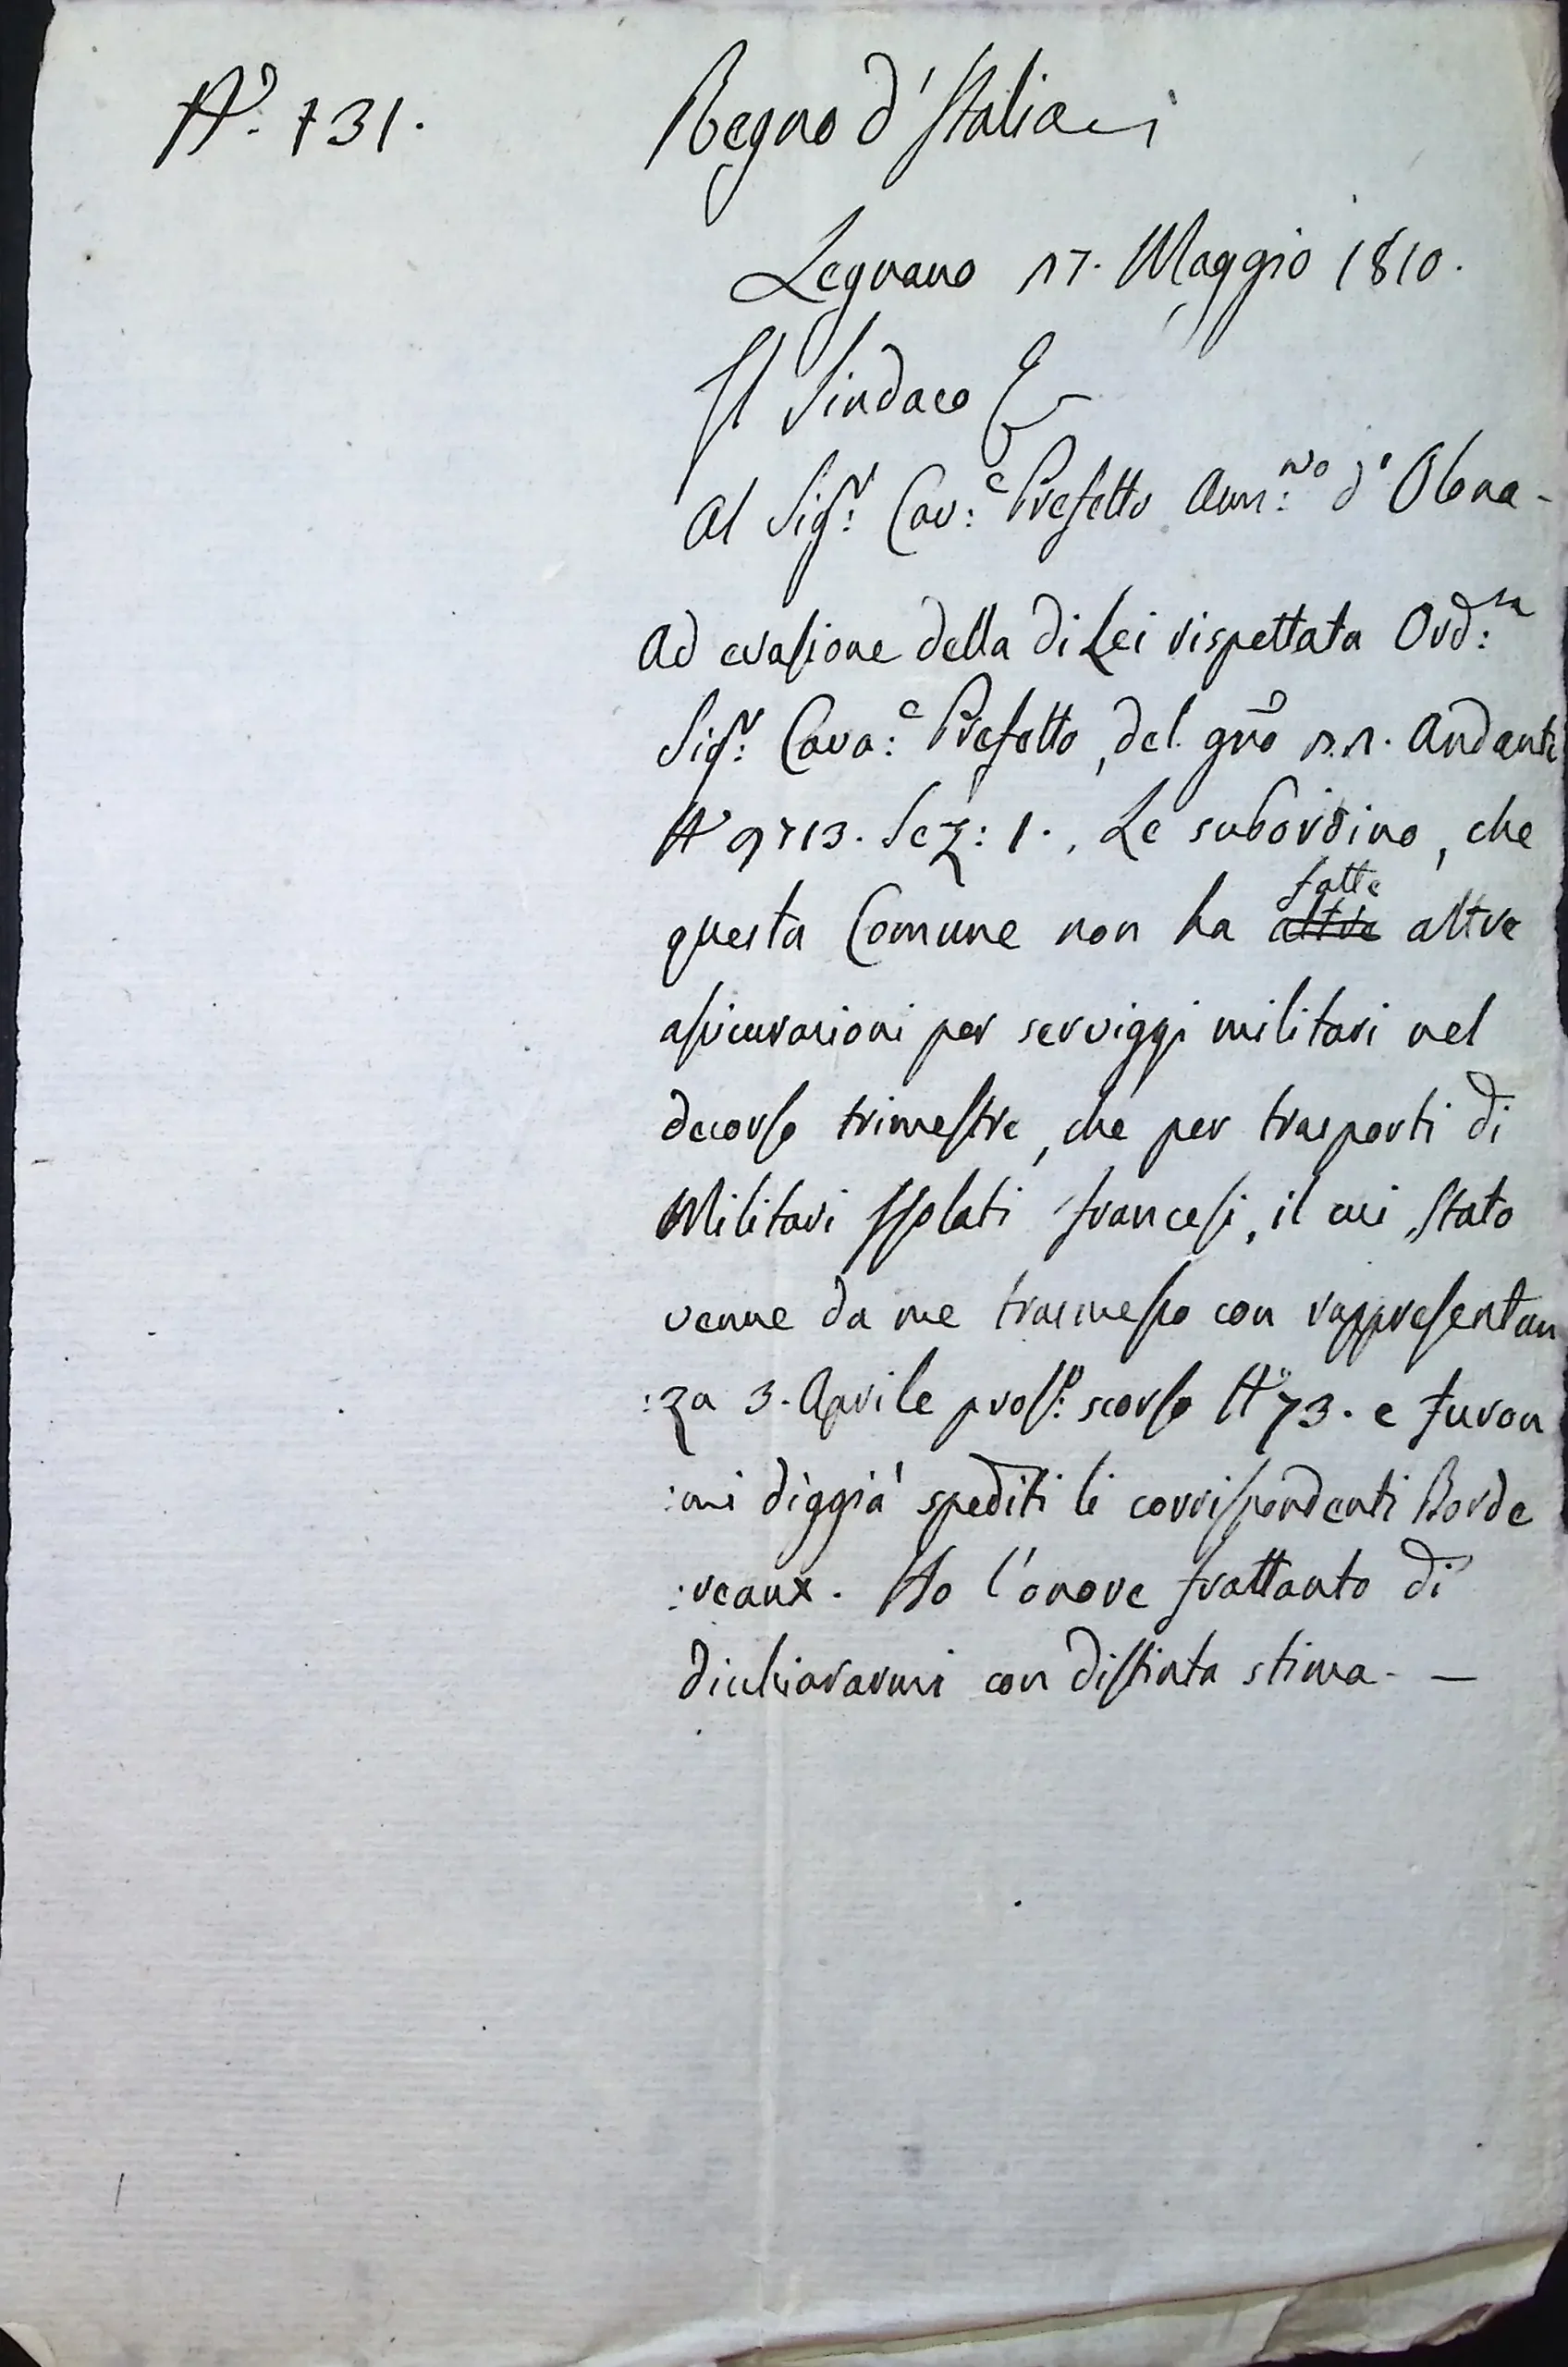 N.º 131.
Regno d'Italia
Legnano 17. Maggio 1810.
Il Sindaco
Al Sig.r Cav.e Prefetto Amm.vo d'Olona -
Ad evasione della di Lei rispettata Ord.za
Sig.r Cava.e Prefetto, del gno 11. Andante
N.º 9713. Sez: 1., Le subordino, che
questa Comune non ha altre fatte altre
assicurazioni per serviggi militari nel
decorso trimestre, che per trasporti di
Militari Issolati francesi, il cui Stato
venne da me trasmesso con rappresentan
:za 3. Aprile pross.º scorso N.º 73. e furon
:mi diggià spediti li corrispondenti Borde
:reaux. Ho l'onore frattanto di
dichiararmi con distinta stima. —